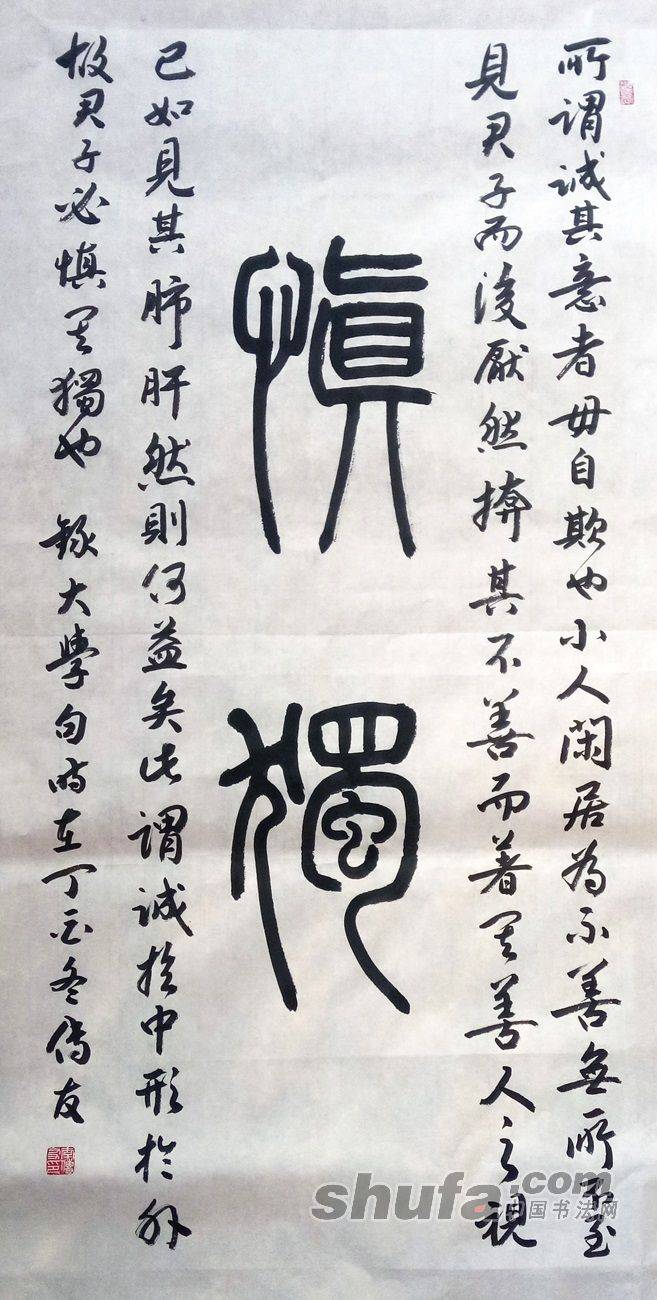 所謂誠其意者毋自欺也小人閑居為不善無所不至
見君子而後厭然揜其不善而著其善人之視
慎獨
己如見其肺肝然則何益矣此謂誠於中形於外
故君子必慎其獨也 錄大學句時在丁酉冬傳友
shufa.com
中国书法网